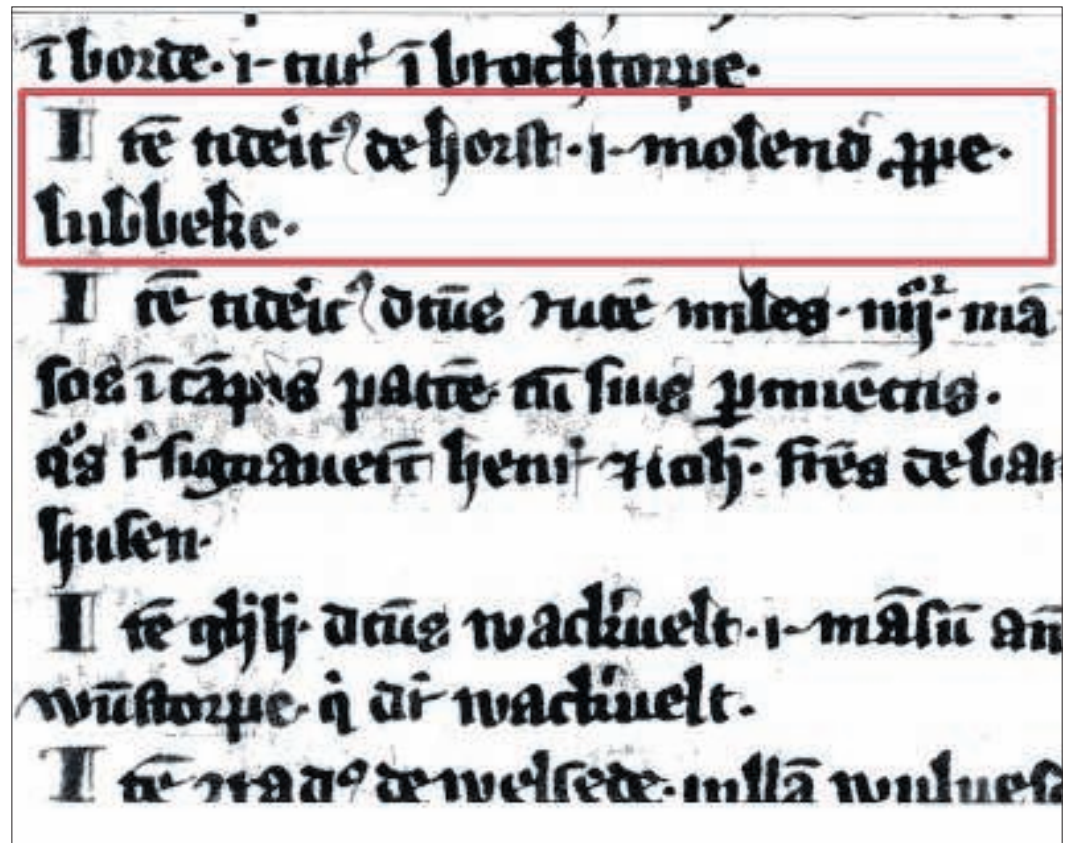 ī borde· i· cur̄ ī brochtorpe·
I tē tideric⁹ de horst· i· molend̄ ꝓpe·
lubbeke·
I tē tideric⁹ dc̄us rutē miles· iiij· mā
sos ī cāpis pattē cū suis ꝓuiēctis·
q̊s rͥsignauer̄t henr̄ ⁊ ioh̄· fr̄es de bar
husen·
I tē ghīs dc̄us wackeruelt· i· māsū an̄
wūstorpe· dr̄ wackeruelt·
I tē ꝯrad⁹ de welsede· uillā wulues